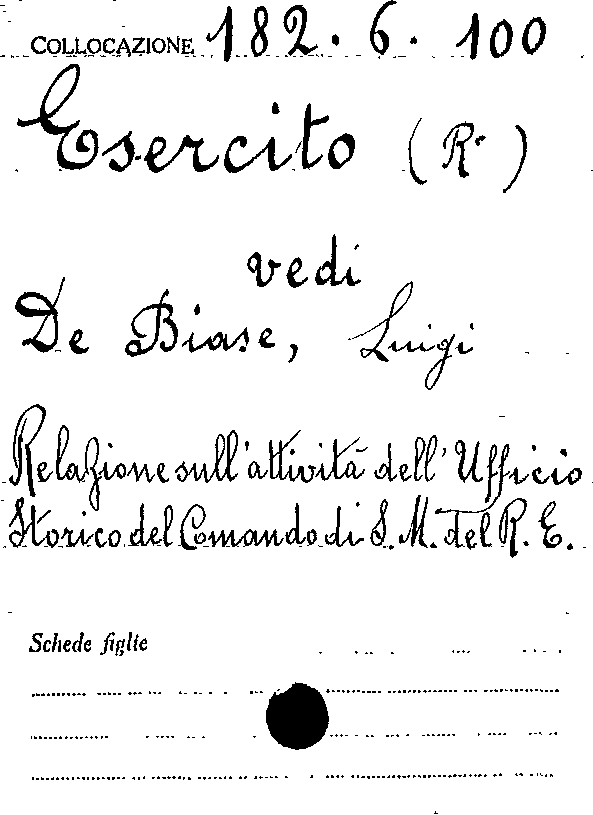 COLLOCAZIONE 182.6.100
Esercito (R.)
vedi
De Biase, Luigi
Relazione sull'attività dell'Ufficio
Storico del Comando di S.M. del R.E.
Schede figlie